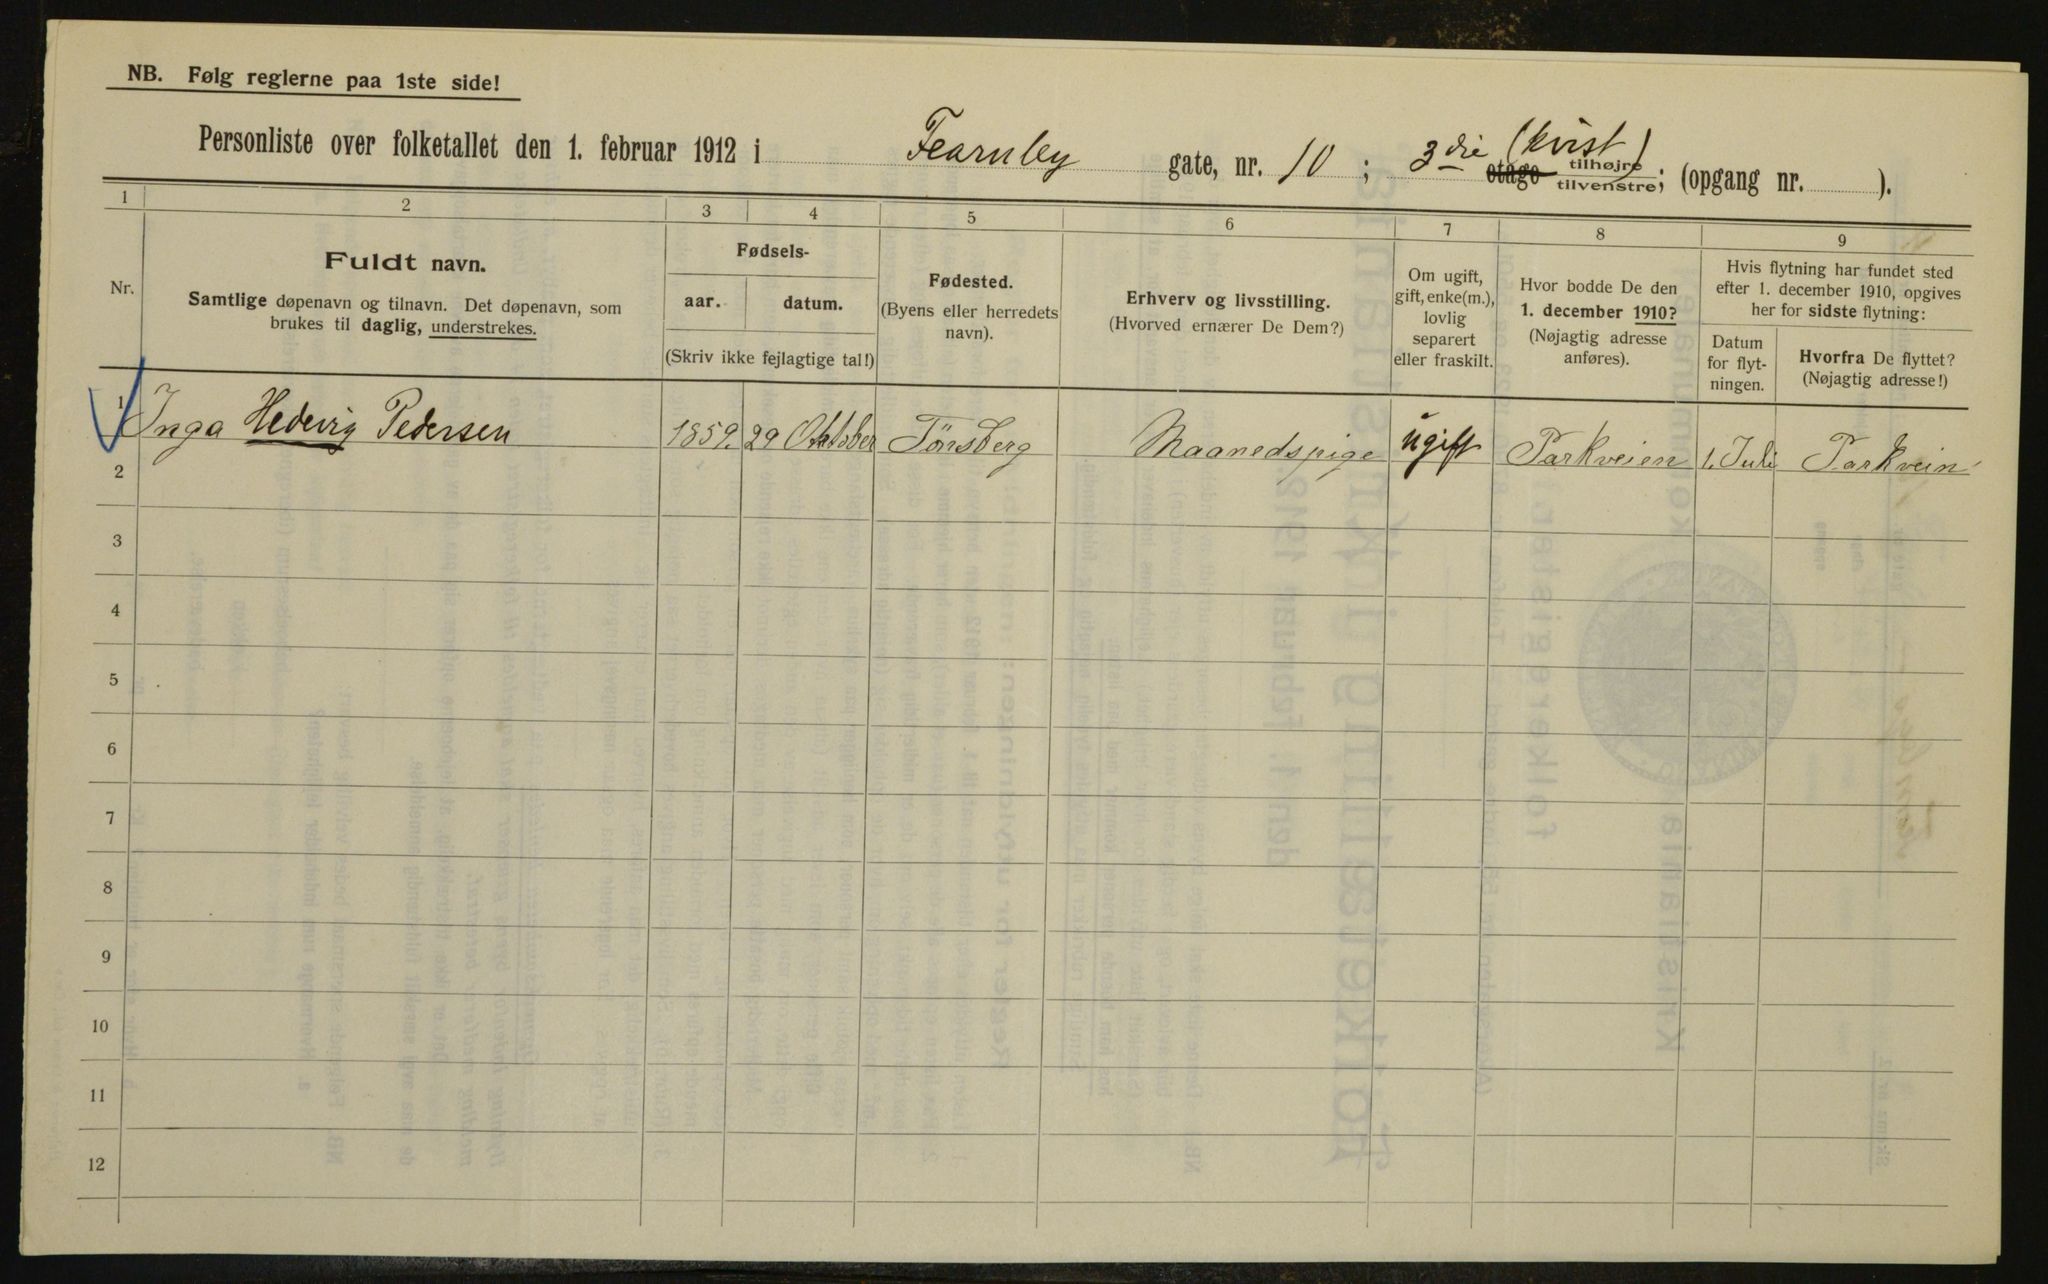 NB. Følg reglerne paa 1ste side!
Personliste over folketallet den 1. februar 1912 i Fearnley gate, nr. 10; 3die (kvist) etage tilhøjre tilvenstre; (opgang nr. ).
1 2 3 4 5 6 7 8 9
Nr.
Fuldt navn.
Samtlige døpenavn og tilnavn. Det døpenavn, som
brukes til daglig, understrekes.
Fødsels-
aar. datum.
(Skriv ikke fejlagtige tal!)
Fødested.
(Byens eller herredets
navn).
Erhverv og livsstilling.
(Hvorved ernærer De Dem?)
Om ugift,
gift, enke(m.),
lovlig
separert
eller fraskilt.
Hvor bodde De den
1. december 1910?
(Nøjagtig adresse
anføres).
Hvis flytning har fundet sted
efter 1. december 1910, opgives
her for sidste flytning:
Datum
for flyt-
ningen.
Hvorfra De flyttet?
(Nøjagtig adresse!)
1 Inga Hedevig Pedersen 1859. 29 Oktober Tönsberg Maanedspige ugift Parkveien 1. Juli Parkvein
2
3
4
5
6
7
8
9
10
11
12